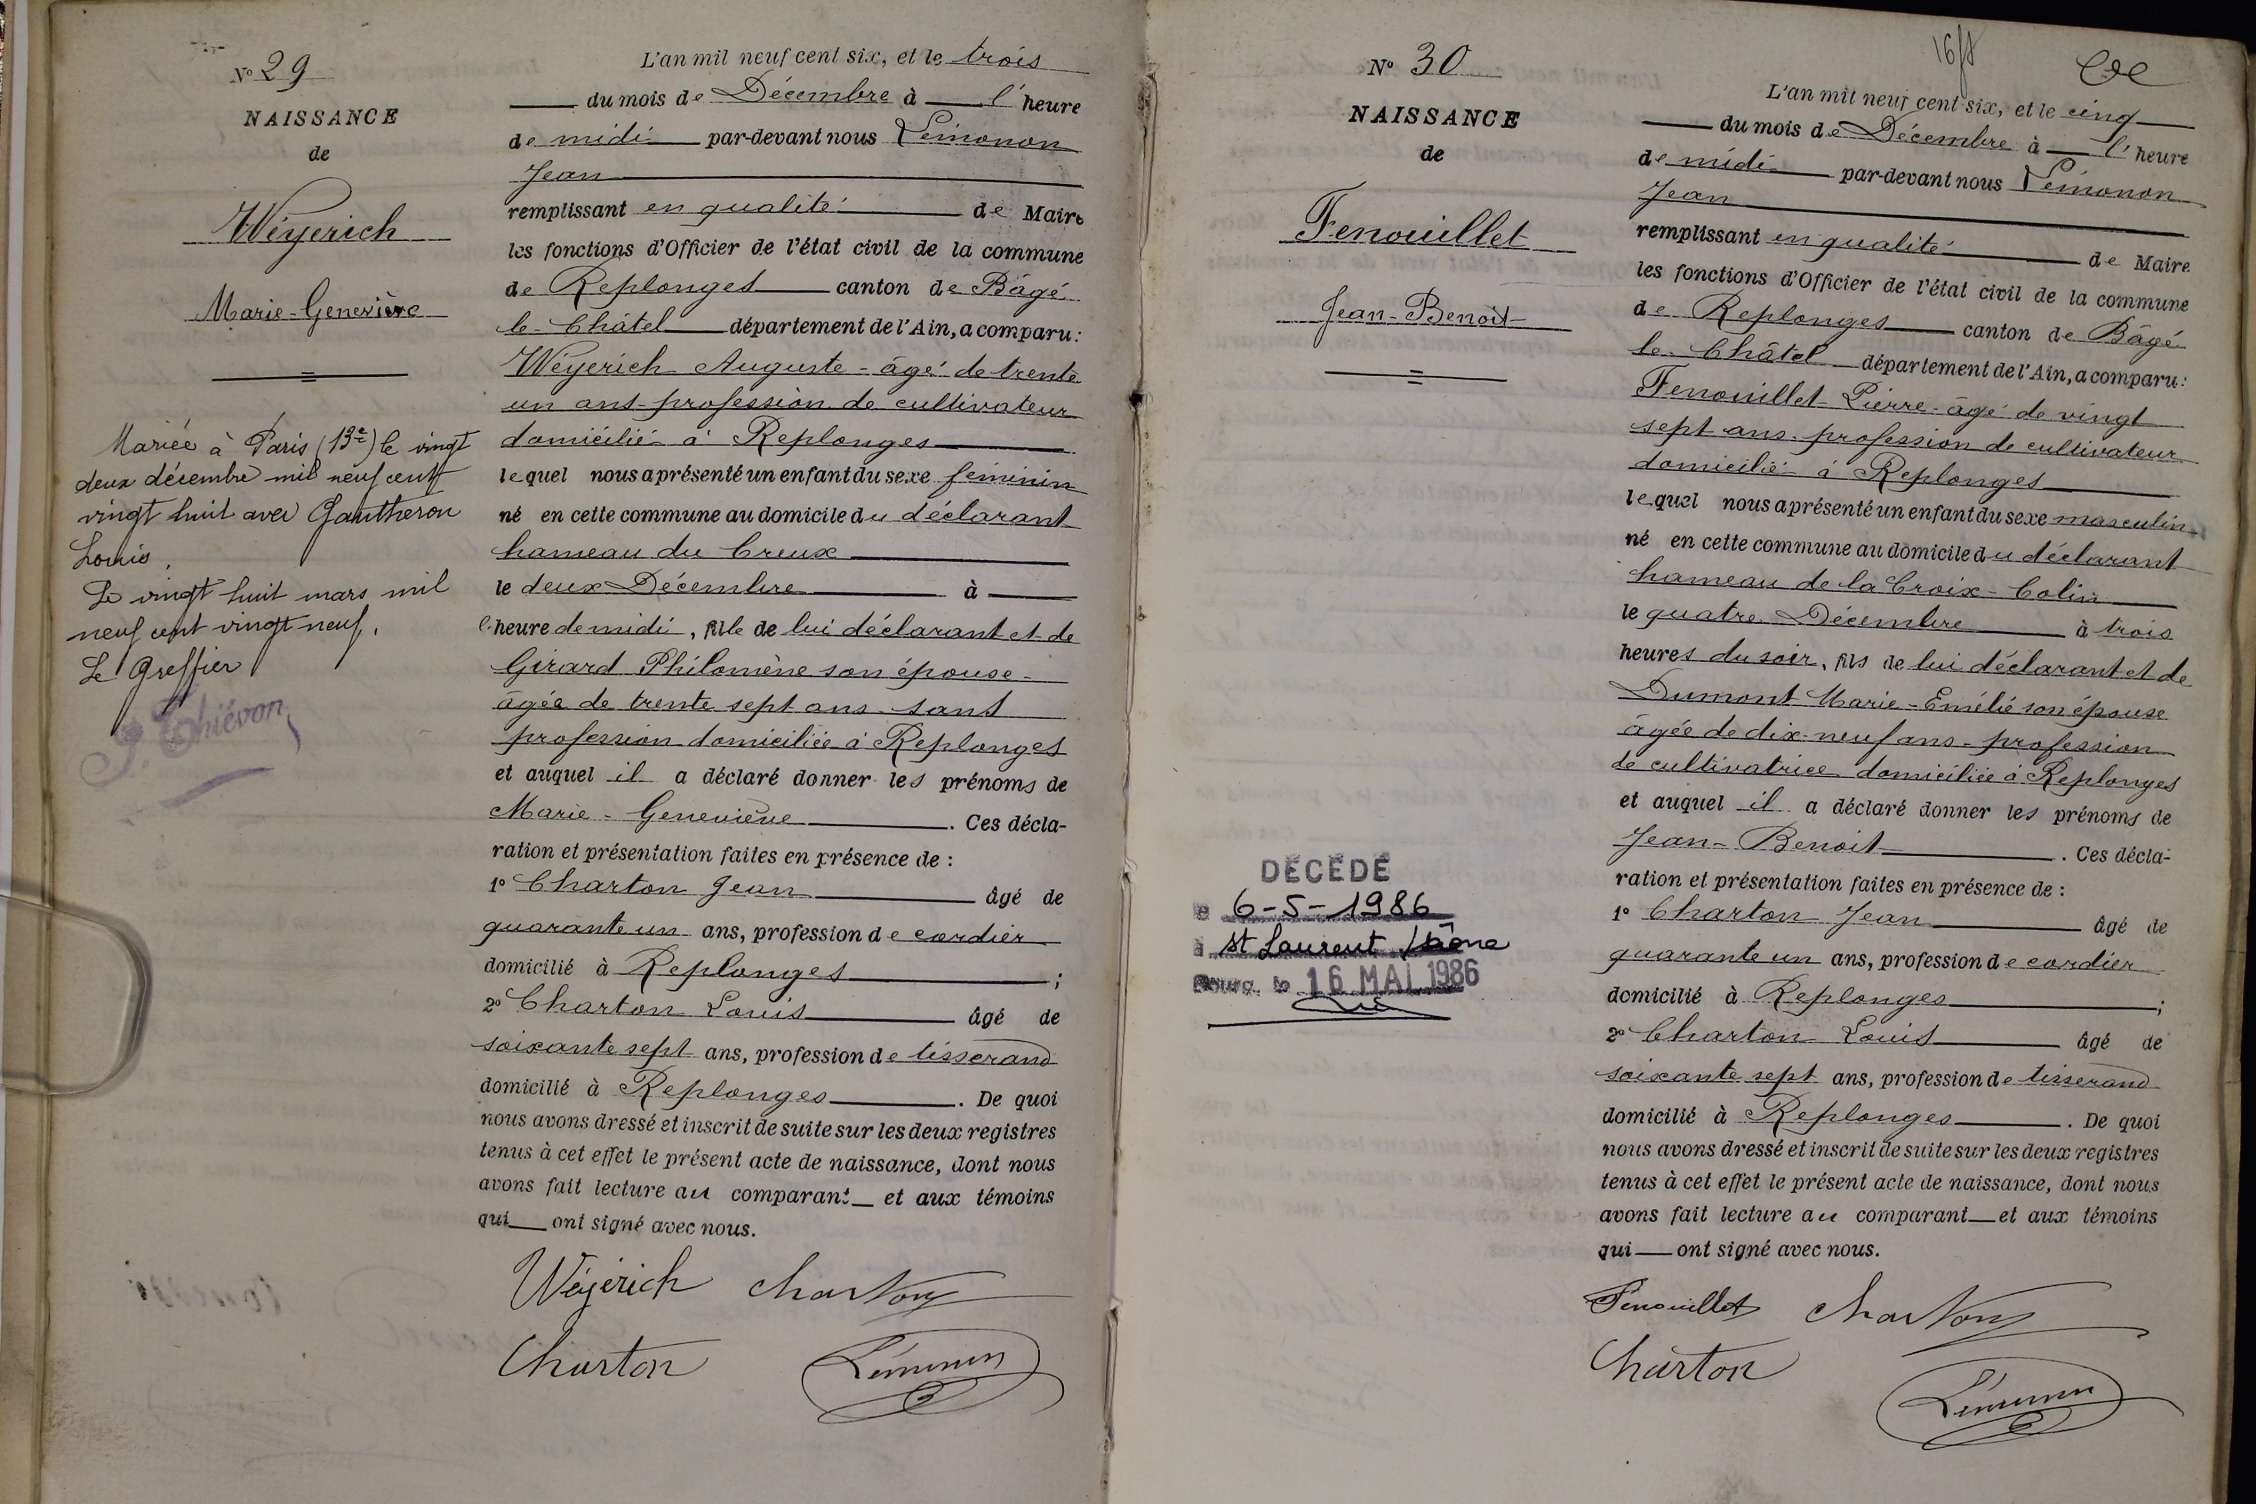 N° 29
NAISSANCE
de
Wéyerich
Marie-Geneviève
Mariée à Paris (13e) le vingt
deux décembre mil neuf cent
vingt huit avec Gautheron
Louis.
Le vingt huit mars mil
neuf cent vingt neuf.
Le Greffier
Thiévon
L'an mil neuf cent six, et le trois
du mois de Décembre à l'heure
de midi par-devant nous Lémonon
Jean
remplissant en qualité de Maire
les fonctions d'Officier de l'état civil de la commune
de Replonges canton de Bâgé
le-Châtel département de l'Ain, a comparu:
Wéyerich Auguste - âgé de trente
un ans profession de cultivateur
domicilié à Replonges
lequel nous a présenté un enfant du sexe féminin
né en cette commune au domicile du déclarant
hameau du Creux
le deux Décembre à
l'heure de midi, fille de lui déclarant et de
Girard Philomène son épouse -
âgée de trente sept ans sans
profession domiciliée à Replonges
et auquel il a déclaré donner les prénoms de
Marie - Geneviève . Ces décla-
ration et présentation faites en présence de :
1° Charton Jean âgé de
quarante un ans, profession de cordier
domicilié à Replonges ;
2° Charton Louis âgé de
soixante sept ans, profession de tisserand
domicilié à Replonges . De quoi
nous avons dressé et inscrit de suite sur les deux registres
tenus à cet effet le présent acte de naissance, dont nous
avons fait lecture au comparant et aux témoins
qui ont signé avec nous.
Wéyérich Charton
Charton Lémonon
N° 30
NAISSANCE
de
Fenouillet
Jean-Benoit
DÉCÉDÉ
le 6-5-1986
à St Laurent s/Saône
Bourg, le 16 MAI 1986
L'an mil neuf cent six, et le cinq
du mois de Décembre à l'heure
de midi par-devant nous Lémonon
Jean
remplissant en qualité de Maire
les fonctions d'Officier de l'état civil de la commune
de Replonges canton de Bâgé
le-Châtel département de l'Ain, a comparu:
Fenouillet Pierre - âgé de vingt
sept ans - profession de cultivateur
domicilié à Replonges
lequel nous a présenté un enfant du sexe masculin
né en cette commune au domicile du déclarant
hameau de la Croix-Colin
le quatre Décembre à trois
heures du soir, fils de lui déclarant et de
Dumont Marie-Emélie son épouse
âgée de dix-neuf ans - profession
de cultivatrice domiciliée à Replonges
et auquel il a déclaré donner les prénoms de
Jean - Benoit . Ces décla-
ration et présentation faites en présence de :
1° Charton Jean âgé de
quarante un ans, profession de cordier
domicilié à Replonges ;
2° Charton Louis âgé de
soixante sept ans, profession de tisserand
domicilié à Replonges . De quoi
nous avons dressé et inscrit de suite sur les deux registres
tenus à cet effet le présent acte de naissance, dont nous
avons fait lecture au comparant et aux témoins
qui ont signé avec nous.
Fenouillet Charton
Charton
Lémonon